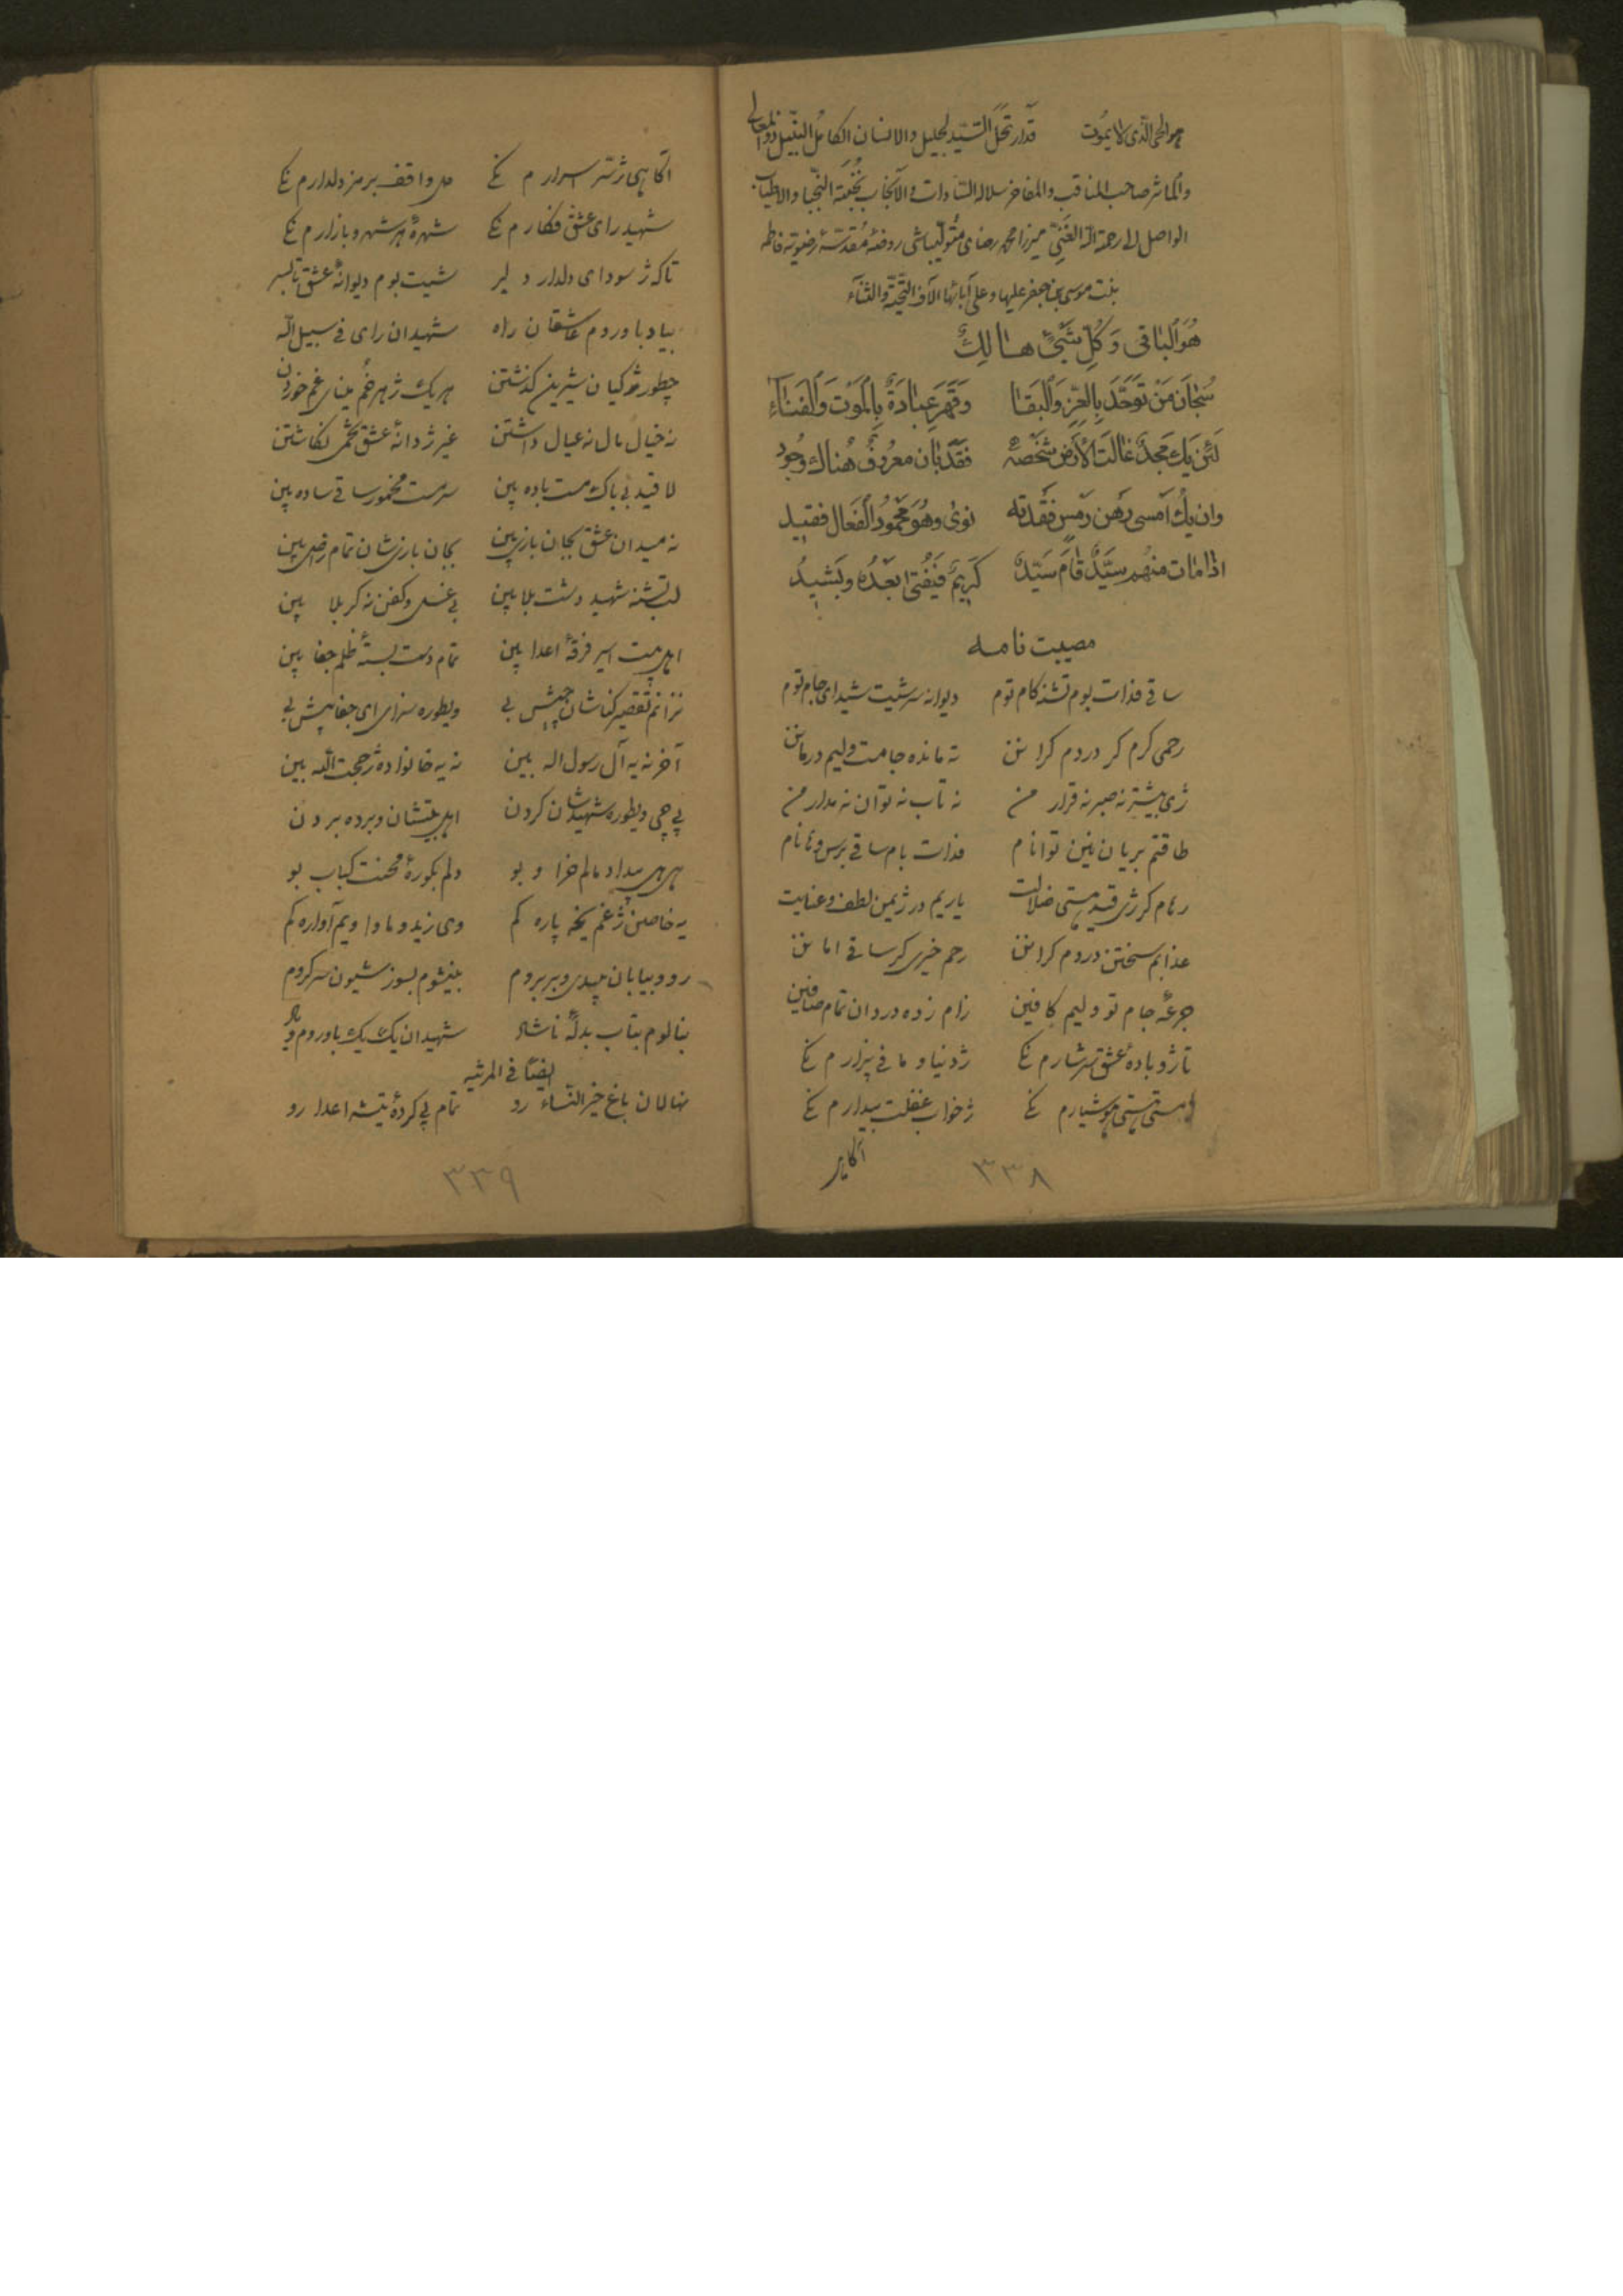 هوالحی الّذی لا یمُوت قد ارتحَلَ السّیّد الجلیل والانسان الکامل النّبیل ذو المعالی
والمآثر صاحب المناقب والمفاخر سلاله السّادات و الانجاب نُخبَة النّجبا والاطیاب
الواصل الی رحمة الله الغَنِیّ میرزا محمد رضای متولّیباشی روضهٔ مُقدّسهٔ رضویّه فاطمه
بنت موسی بن جعفر علیها و علی آبائها الآف التّحیّة والثّنآء
هُوَالباقی وَ کُلّ شَیْیً هالِکٌ
سُبْحانَ مَنْ تَوَحَّدَ بِالعِزِّ وَالبَقا وَقَهَرَ عِبادَهُ بِالمَوْت وَالفَناء
لَئن یَك مَجدٌ غالَت الاَرض شَخصَهُ فَقَد بان معرُوفٌ هُناك وجُود
وان یكُ اَمسی رَهن رَمسٍ فَقَدته نوی وهُوَ محمُودُ الفَعال فقید
اذا مٰات منهُم سیّدٌ قٰامَ سَیّدٌ کَریمٌ فَیَفنی بَعدُه ویَشیدُ
مصیبت نامه
ساقی فدات بوم تشنه کام توم دیوانه سرشیت شیدای جام توم
رحمی کرم کر دردم کرانن نه مانده جامت ولیم درمانن
ژی بیشتر نه صبر نه قرار من نه تاب نه توان نه مدار من
طاقتم بریان نین توانام فدات بام ساقی برس وه نام
رهام کر ژی قید هستی ضلالت یاریم در ژیمن لطف و عنایت
عذابم سختن دردم کرانن رحم خیری کر ساقی امانن
جرعهٔ جام تو ولیم کافین زام زده دردان تمام صافین
تا ژو بادهٔ عشق سرشارم نکی ژ دنیا و مافی بیزارم نکی
مستی هوشیارم نکی ژ خواب غفلت بیدارم نکی
آگاهی
۳۳۸
آگاهی ژ سر اسرارم نکی دل واقف بر مز دلدارم نکی
شهید رای عشق فکارم نکی شهرهٔ هر شهر و بازارم نکی
تا که ژ سودای دلدار دلبر شیت بوم دیوانهٔ عشق تا بسر
بیاد باوردم عاشقان راه شهیدان رای فی سبیل الله
چطور ژ گیان شیرین گذشتن هر یك ژ هر خُم مینای غم خوردن
نه خیال مال نه عیال داشتن غیر ژ دانهٔ عشق تخمی نکاشتن
لاقید بی باك مست باده بین سرمست مخمور ساقی ساده بین
نه میدان عشق بجان بازی بین بجان بازیشان تمام راضی بین
لب تشنه شهید دشت بلا بین بی غسل و کفن نه کربلا بین
اهل بیت اسیر فرقهٔ اعدا بین تمام دست بستهٔ ظلم جفا بین
نزانم تقصیر کناشان چیش بی ویطوره سزای ای جفا پیش بی
آخر نه یه آل رسول اله بین نه یه خانواده ژ حجت الله بین
پی چی ویطوره شهیدشان کردن اهل بیتشان و برده بردن
هی هی بیداد مالم خراو بو دلم بکورهٔ محنت کباب بو
یه خاصین ژ غم یخه پاره کم وی زید و ماوا ویم آواره کم
رو و بیابان بیدی وبر بروم بنیشوم بسوز شیون سر کروم
بنالوم بتاب بدلهٔ ناشاد شهیدان یك یك باوروم و یاد
ایضاً فی المرثیه
نهالان باغ خیر النساء رو تمام پی کردهٔ تیشه اعدا رو
۳۳۹